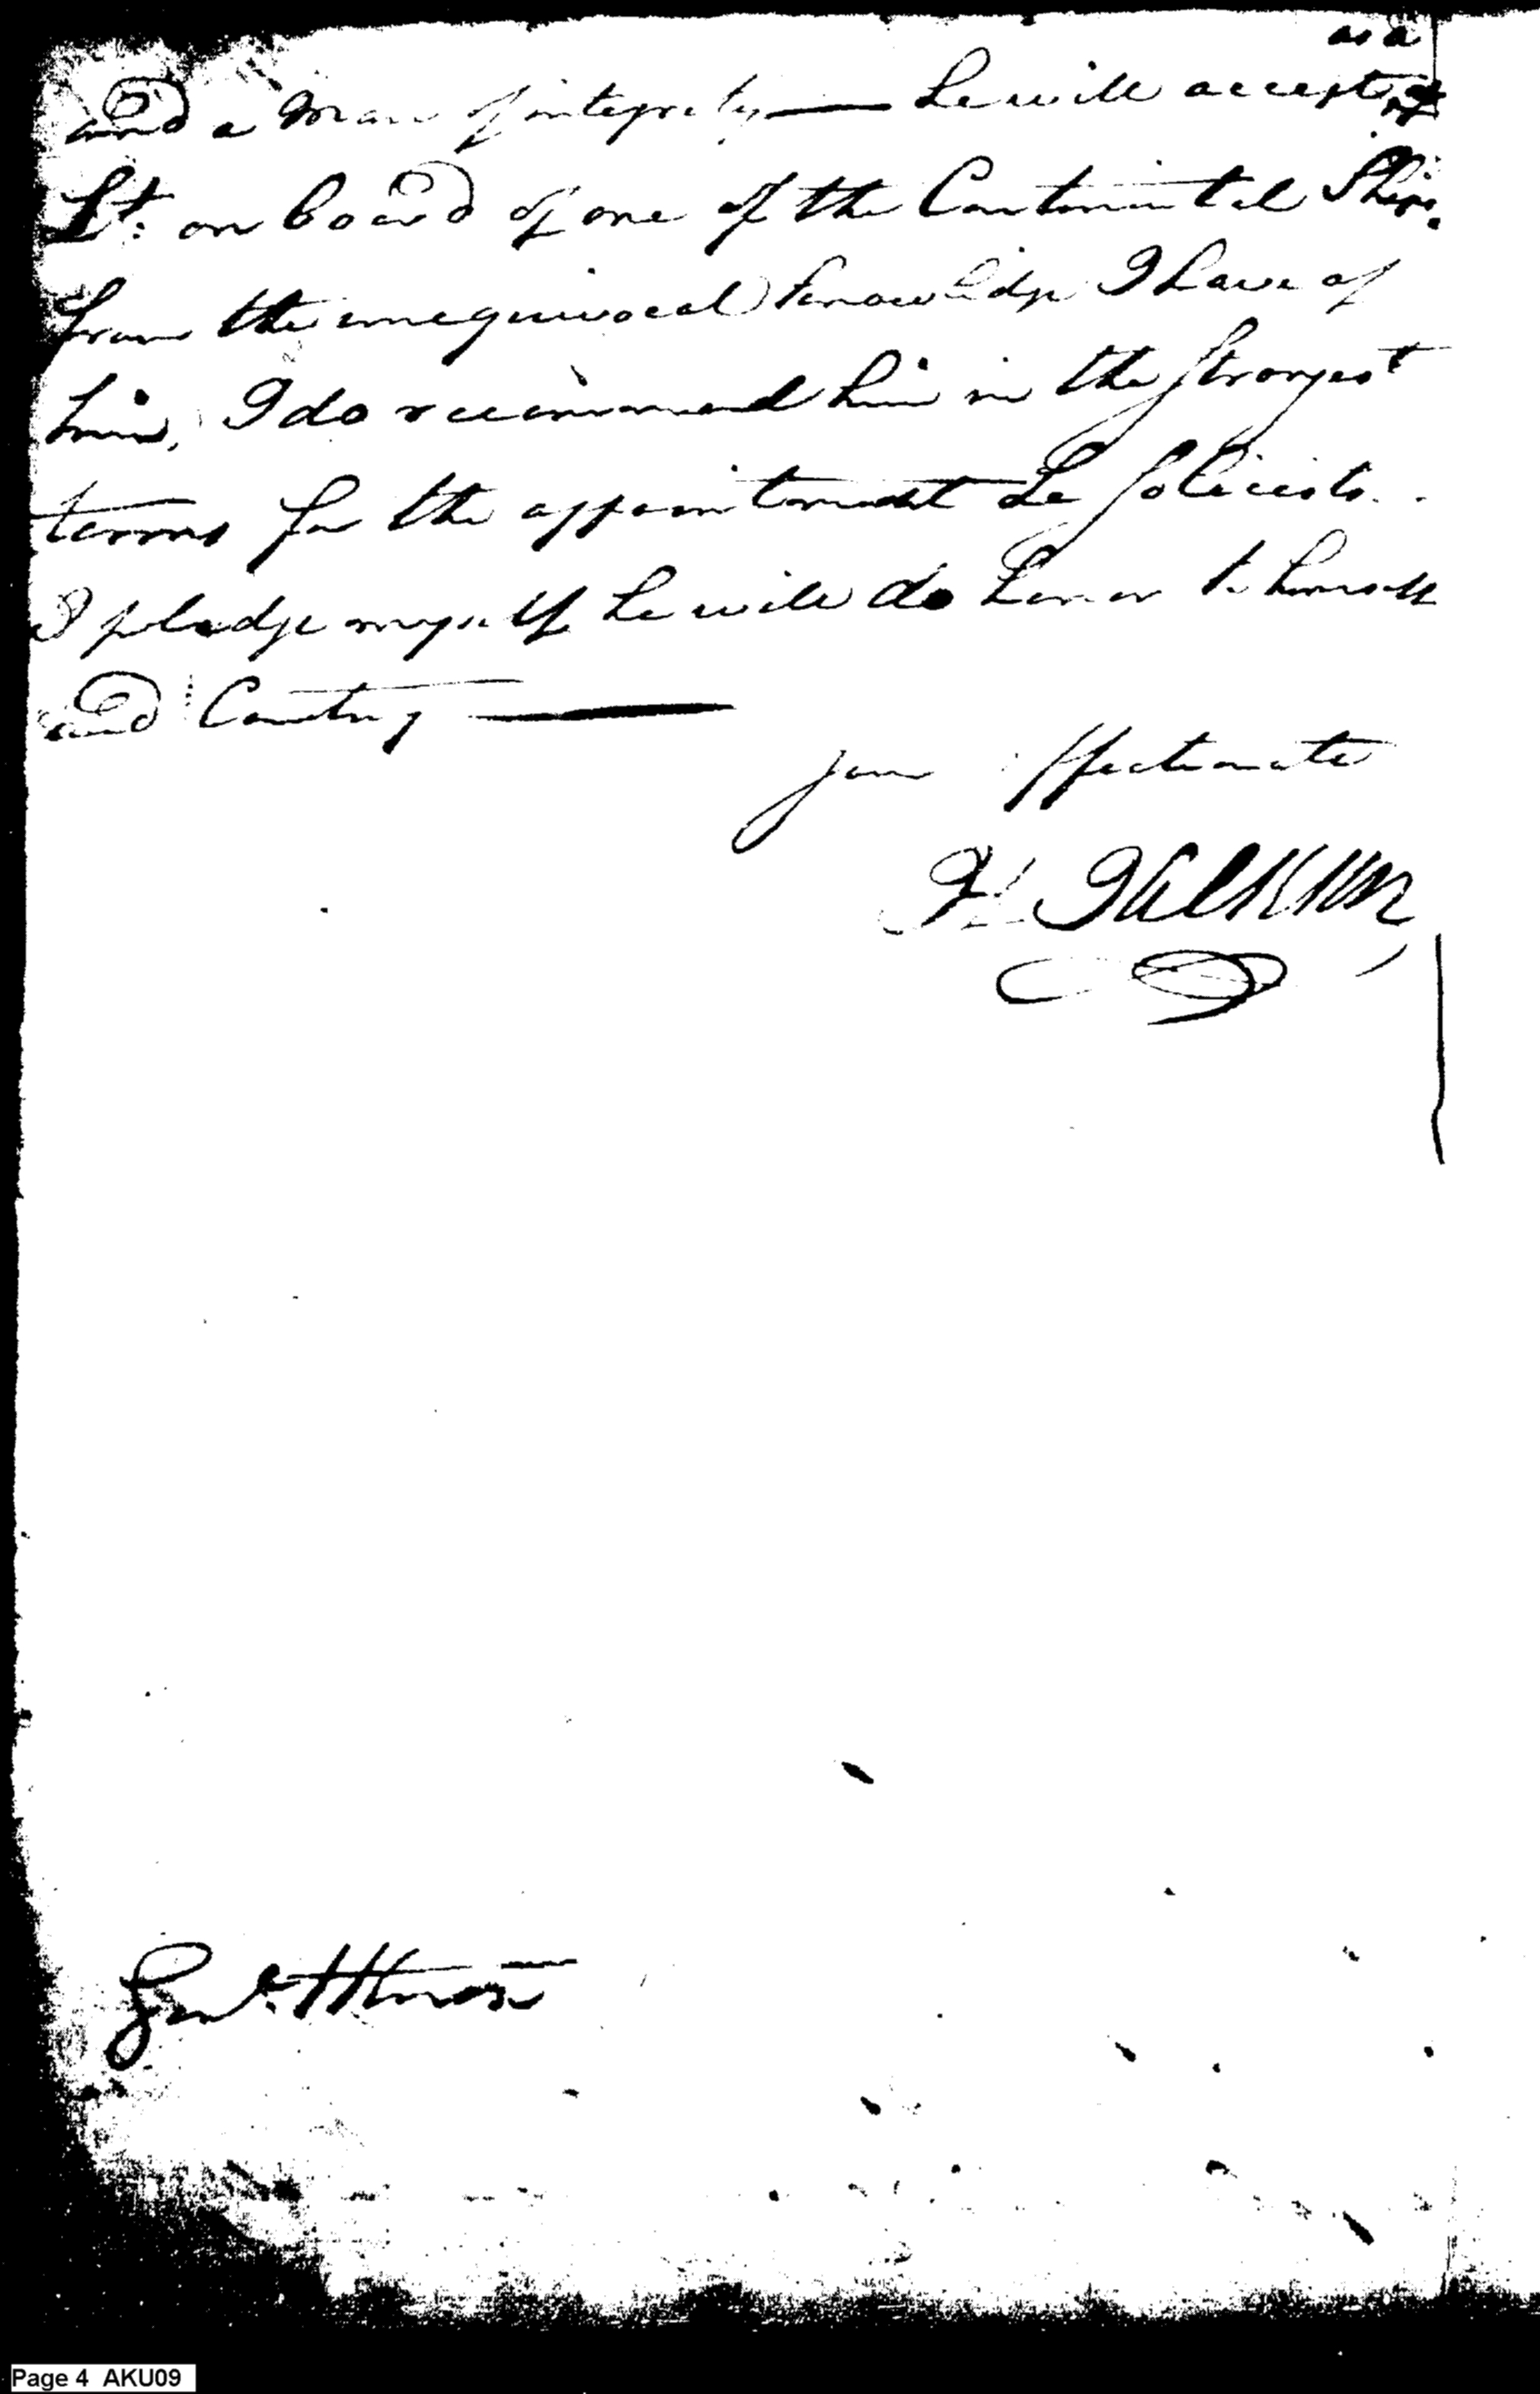 as a
and a Man of integrity — he will accept
Lt: on board of one of the Continental Ships.
from the unequivocal knowledge I have of
him, I do recommend him in the strongest
terms for the appointment he solicists.
I pledge myself he will do honor to himself
and Country —
your affectionate
H Jackson
Genl. HKnox
Page 4 AKU09